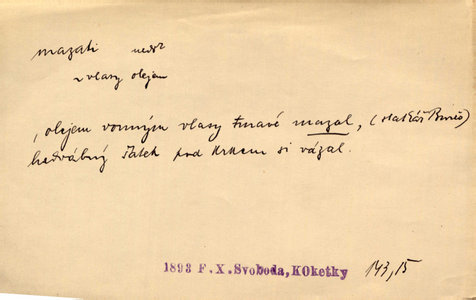 mazati nedok
~ vlasy olejem
, olejem vonným vlasy tmavé mazal, (otakář
hedvábný šátek pod krkem si vázal.
1893 F. X. Svoboda, KOketky 143,15